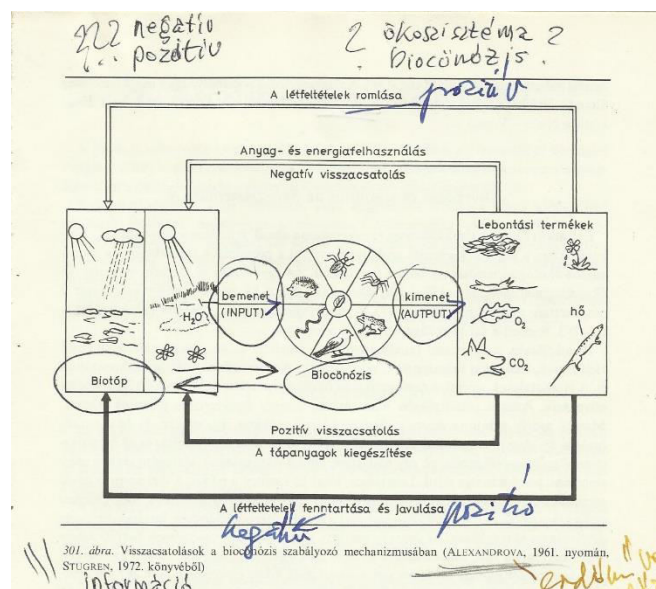 ??? negatív
?.. pozitív
? ökoszisztéma ?
biocönózis .
A létfeltételek romlása
pozitív
Anyag- és energiafelhasználás
Negatív visszacsatolás
Lebontási termékek
bemenet
(INPUT)
kimenet
(AUTPUT)
H₂O
O₂
hő
CO₂
Biotóp
Biocönózis
Pozitív visszacsatolás
A tápanyagok kiegészítése
A létfeltételek fenntartása és javulása
negatív
pozitív
301. ábra. Visszacsatolások a biocönózis szabályozó mechanizmusában (ALEXANDROVA, 1961. nyomán,
STUGREN, 1972. könyvéből)
információ